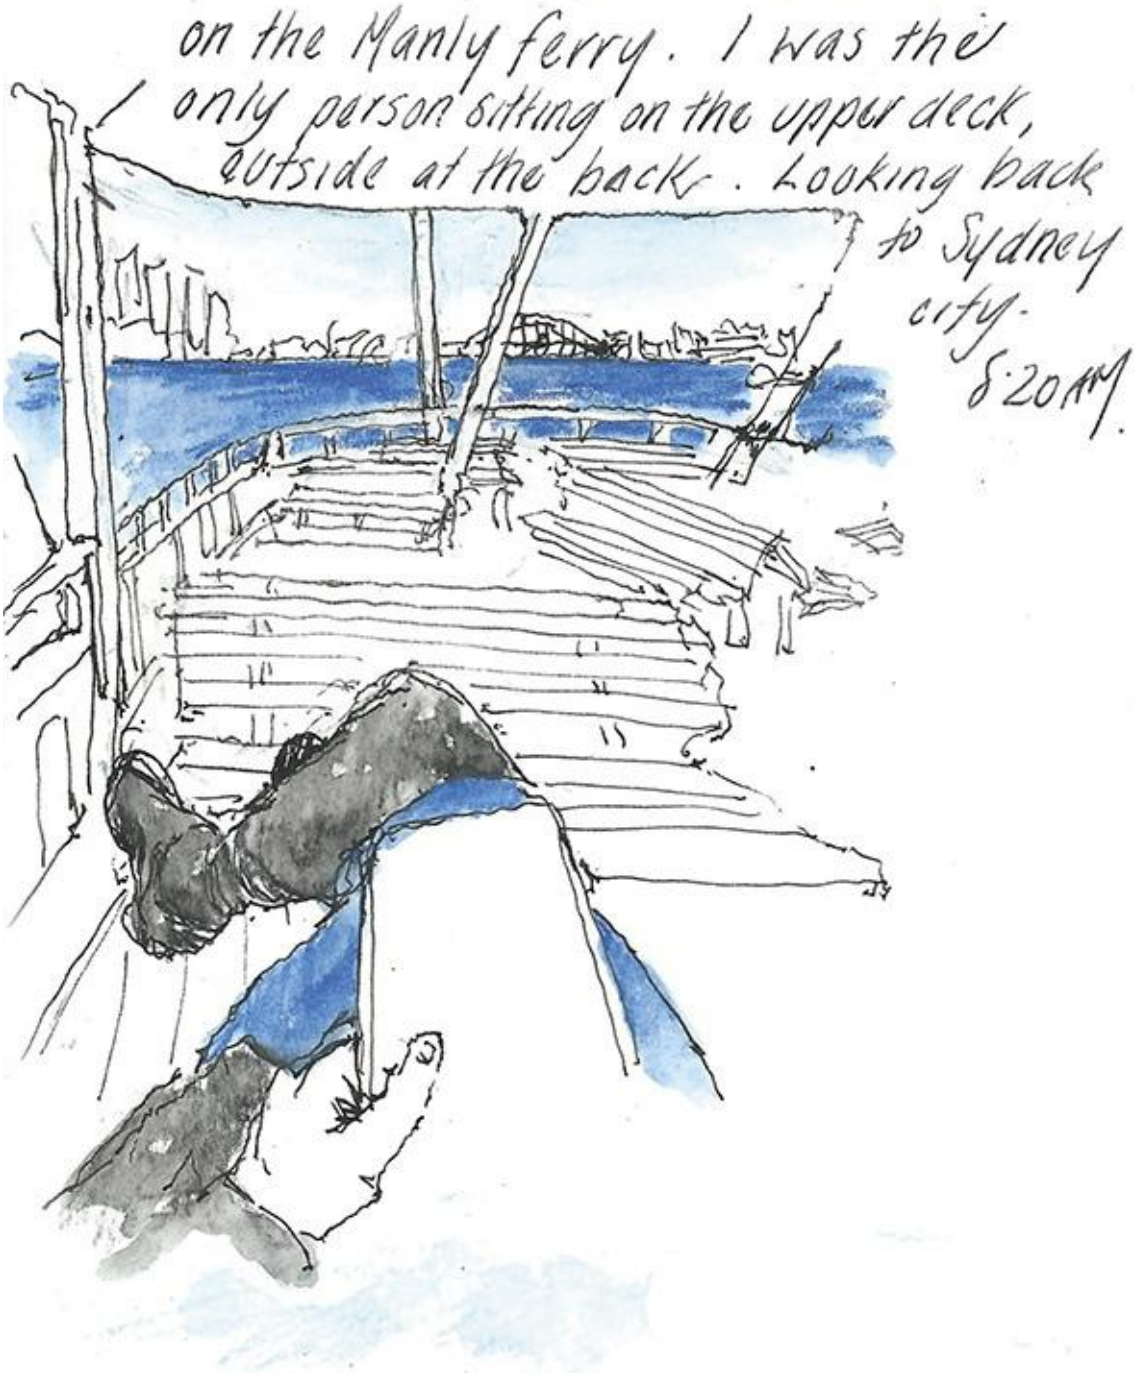 on the Manly ferry. I was the
only person sitting on the upper deck,
outside at the back. Looking back
to Sydney
city.
8:20 AM.